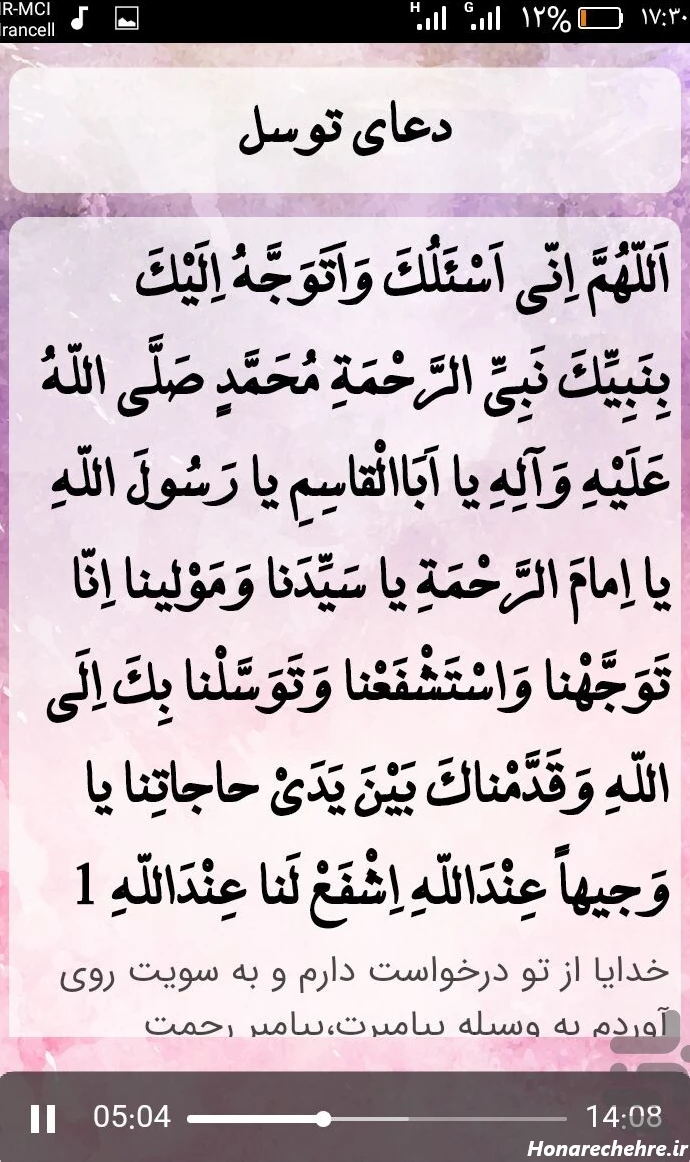 IR-MCI
Irancell
H
G
۱۲%
۱۷:۳۰
دعای توسل
اَللّهُمَّ اِنّی اَسْئَلُكَ وَاَتَوَجَّهُ اِلَیْكَ
بِنَبِیِّكَ نَبِیِّ الرَّحْمَةِ مُحَمَّدٍ صَلَّی اللّهُ
عَلَیْهِ وَآلِهِ یا اَبَاالْقاسِمِ یا رَسُولَ اللّهِ
یا اِمامَ الرَّحْمَةِ یا سَیِّدَنا وَمَوْلینا اِنّا
تَوَجَّهْنا وَاسْتَشْفَعْنا وَتَوَسَّلْنا بِكَ اِلَی
اللّهِ وَقَدَّمْناكَ بَیْنَ یَدَیْ حاجاتِنا یا
وَجیهاً عِنْدَاللّهِ اِشْفَعْ لَنا عِنْدَاللّهِ 1
خدایا از تو درخواست دارم و به سویت روی
آوردم به وسیله پیامبرت،پیامبر رحمت
05:04
14:08
Honarechehre.ir